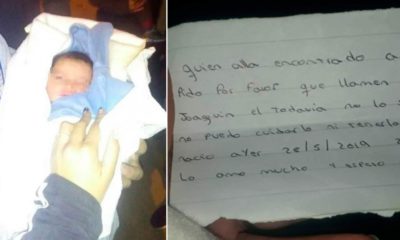 quien alla encontrado a
Pido Por Favor que llamen
Joaquin el todavia no lo
no puedo cuidarlo ni tenerlo
nacio ayer 28/5/2019
lo amo mucho y espero